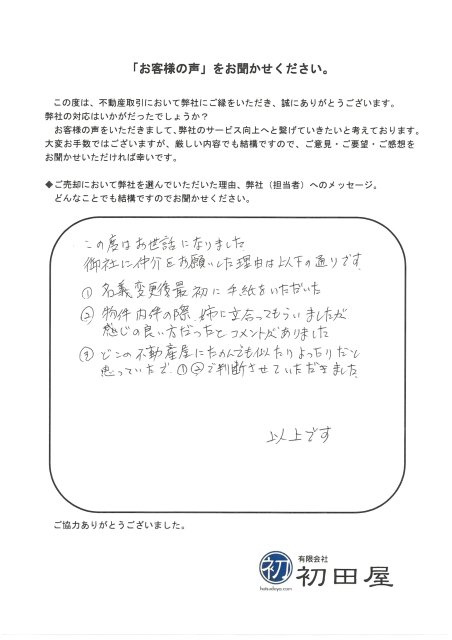 「お客様の声」をお聞かせください。
この度は、不動産取引において弊社にご縁をいただき、誠にありがとうございます。
弊社の対応はいかがだったでしょうか？
お客様の声をいただきまして、弊社のサービス向上へと繋げていきたいと考えております。
大変お手数ではございますが、厳しい内容でも結構ですので、ご意見・ご要望・ご感想を
お聞かせいただければ幸いです。
◆ご売却において弊社を選んでいただいた理由、弊社（担当者）へのメッセージ。
どんなことでも結構ですのでお聞かせください。
この度はお世話になりました
御社に仲介をお願いした理由は以下の通りです
① 名義変更後最初に手紙をいただいた
② 物件内件の際、姉に立合ってもらいましたが
感じの良い方だったとコメントがありました
③ どこの不動産屋にたのんでも似たりよったりだと
思っていたで、①②で判断させていただきました。
以上です
ご協力ありがとうございました。
初
hatsudaya.com
有限会社
初田屋